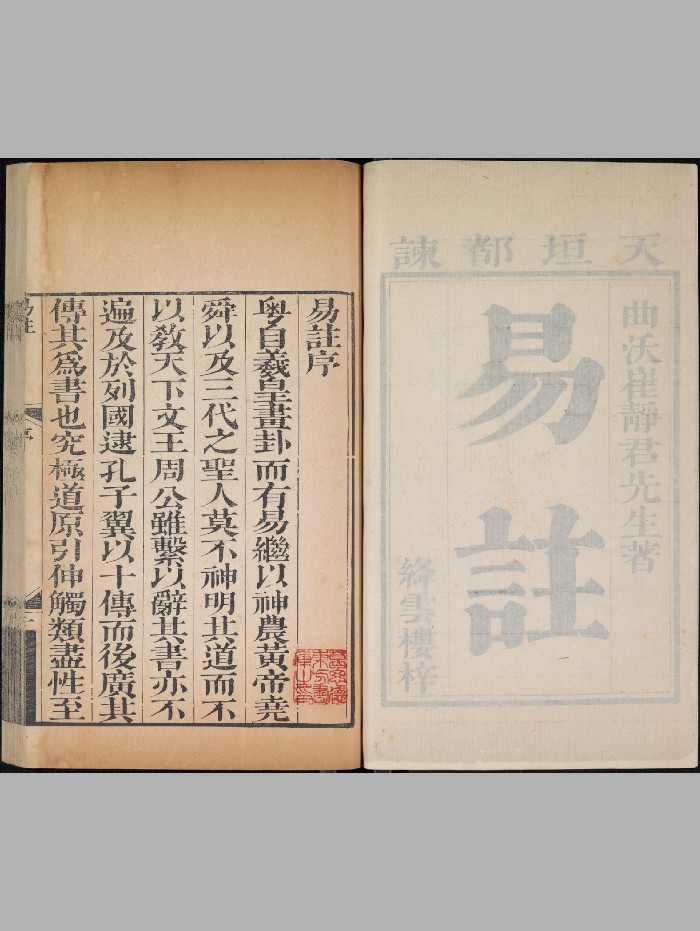 天垣都諫
曲沃崔靜君先生著
易註
絳雲樓梓
易註序
粵自羲皇畫卦而有易繼以神農黃帝堯
舜以及三代之聖人莫不神明其道而不
以敎天下文王周公雖繫以辭其書亦不
遍及於列國逮孔子翼以十傳而後廣其
傳其爲書也究極道原引伸觸類盡性至
易註
序